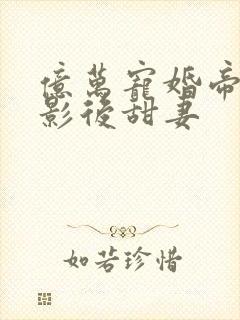 億萬寵婚帝
影後甜妻
如若珍惜